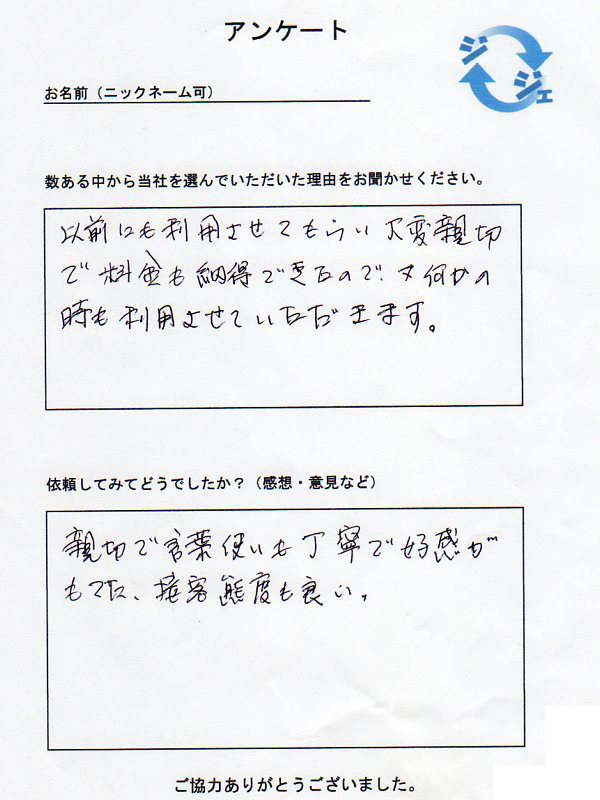 アンケート
ジジェ
お名前（ニックネーム可）
数ある中から当社を選んでいただいた理由をお聞かせください。
以前にも利用させてもらい大変親切
で料金も納得できたので、又何かの
時も利用させていただきます。
依頼してみてどうでしたか？（感想・意見など）
親切で言葉使いも丁寧で好感が
もてた、接客態度も良い。
ご協力ありがとうございました。